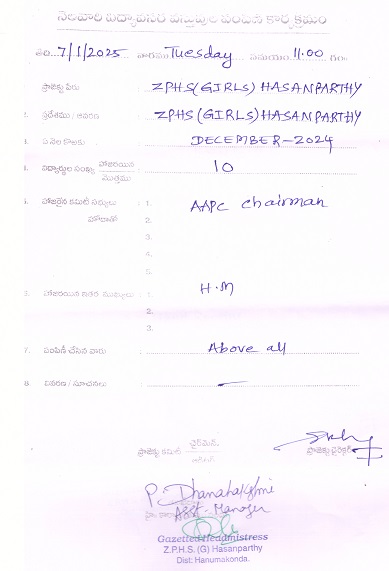 నెలవారీ విద్యావసర వస్తువుల పంపిణీ కార్యక్రమం
తేది...7/1/2025 వారము Tuesday సమయం 11.00 గం
ప్రాజెక్టు పేరు ZPHS (GIRLS) HASANPARTHY
ప్రదేశము / వివరణ ZPHS (GIRLS) HASANPARTHY
ఏ నెల కొరకు DECEMBER-2024
విద్యార్థుల సంఖ్య హాజరయిన / మొత్తము 10
హాజరైన కమిటీ సభ్యులు : 1. AAPC chairman
హోదాతో 2.
3.
4.
5.
హాజరయిన ఇతర ముఖ్యులు : 1. H.M
2.
3.
7. పంపిణీ చేసిన వారు : Above all
8. వివరణ / సూచనలు : —
ప్రాజెక్టు కమిటీ చైర్మెన్
ప్రాజెక్టు డైరెక్టర్
P. Dhanalakshmi
Asst. Manager
Gazetted Headmistress
Z.P.H.S. (G) Hasanparthy
Dist: Hanumakonda.